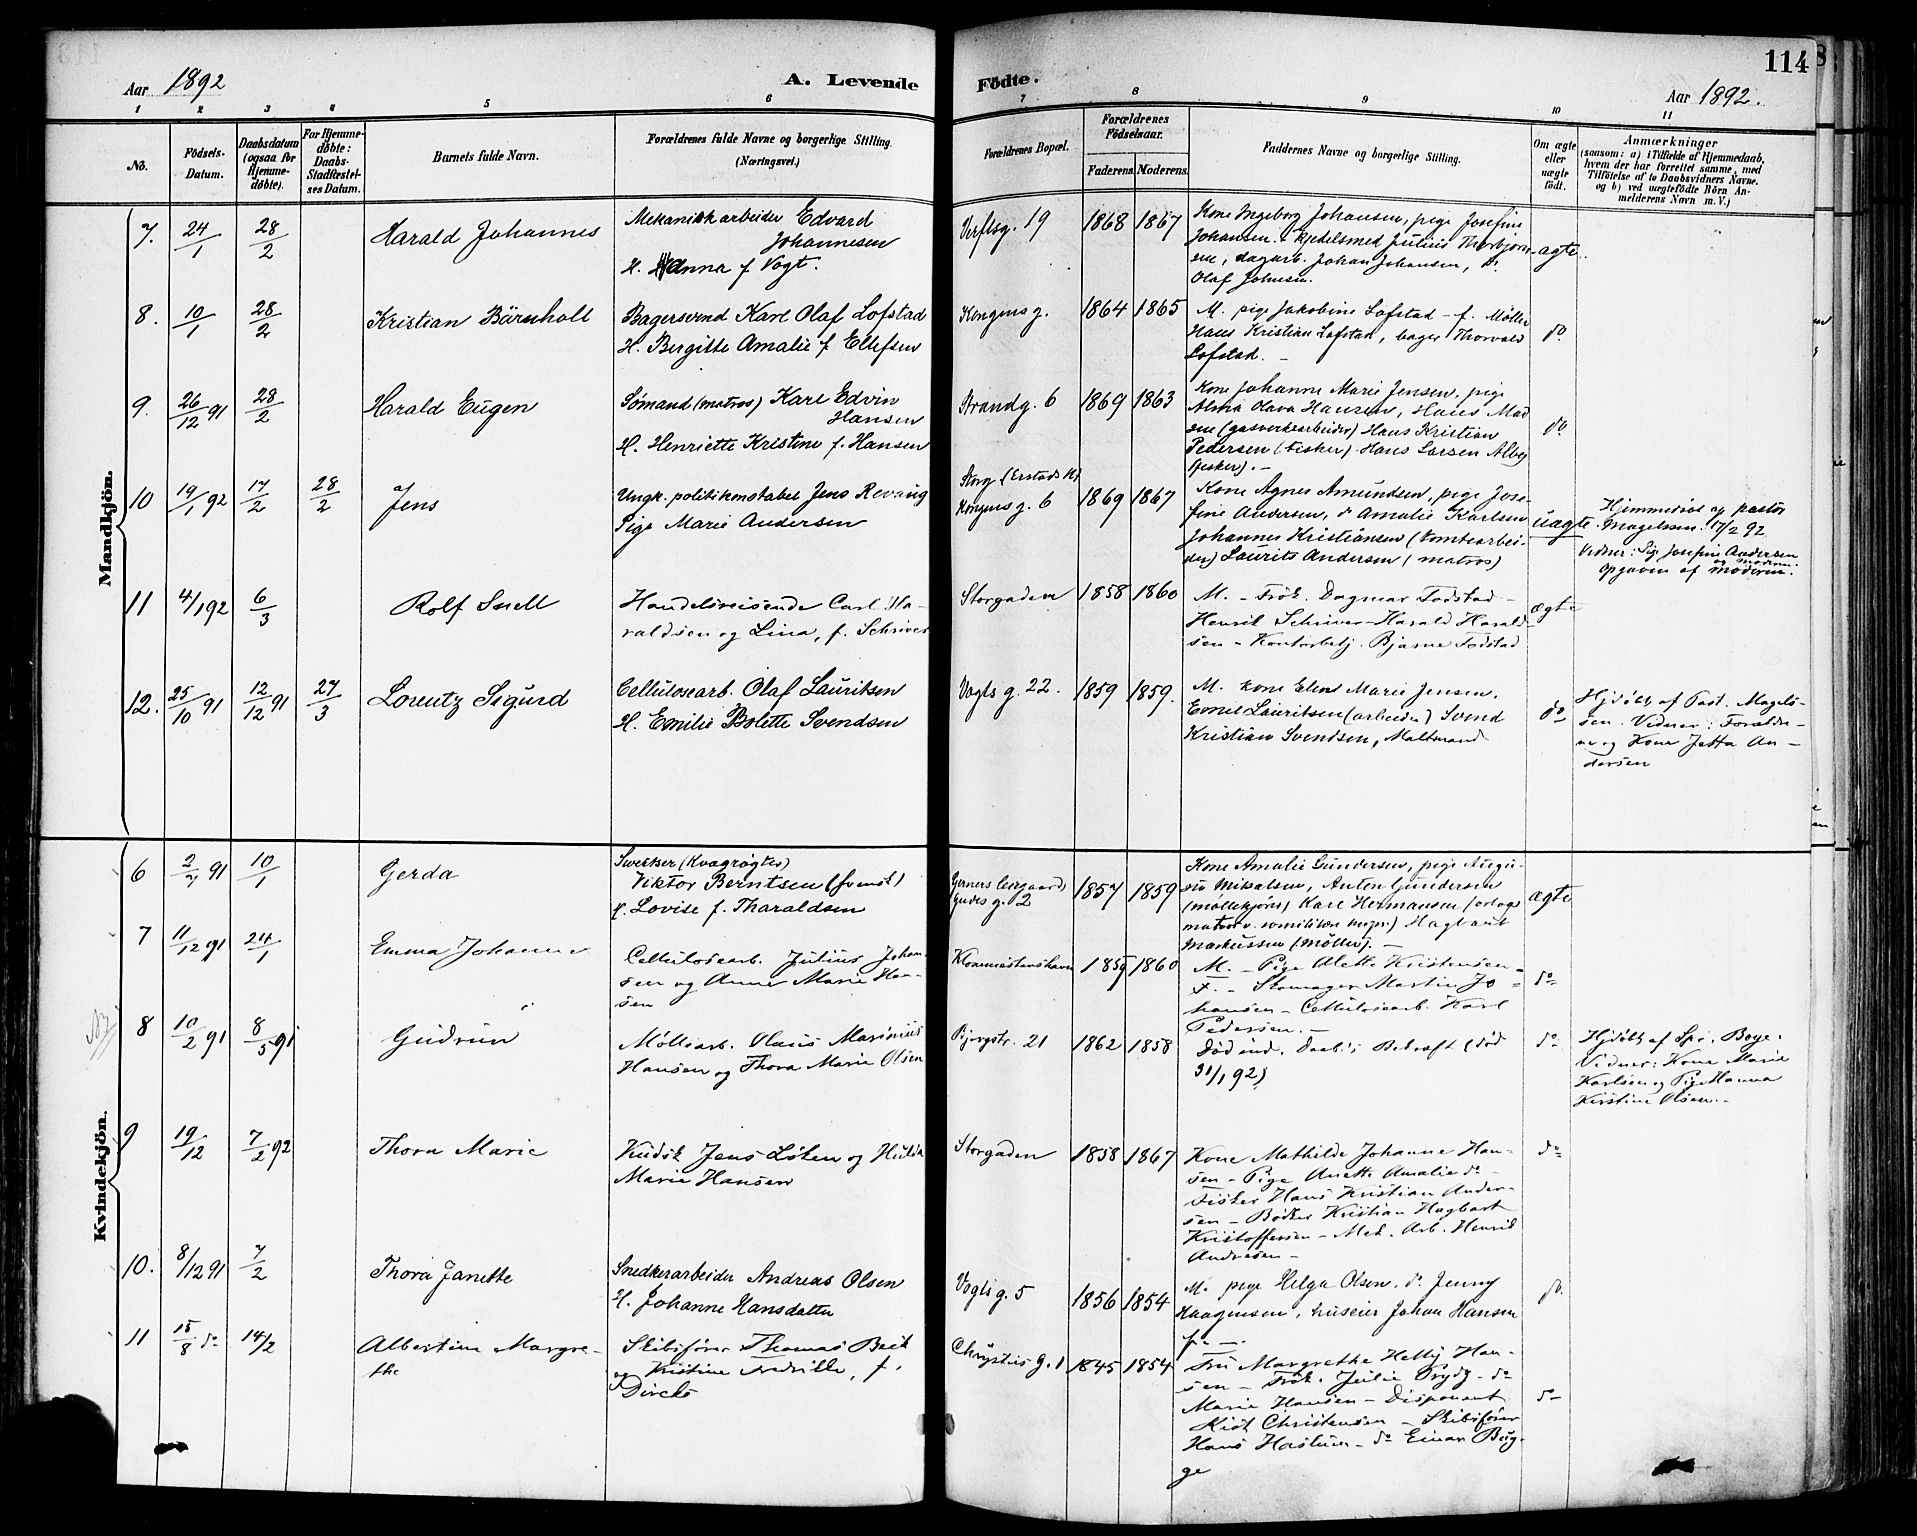 Aar 1892
A. Levende
1 2 3 4 5 6
No.
Födsels-
Datum.
Daabsdatum
(ogsaa for
Hjemme-
döbte).
For Hjemme-
döbte:
Daabs-
Stadfæstel-
ses Datum.
Barnets fulde Navn.
Forældrenes fulde Navne og borgerlige Stilling.
(Næringsvei.)
Mandkjön.
7. 24/1 28/2 Harald Johannes
Mekanisk arbeider Edvard
Johannesen
H. Hanna f. Vogt.
8. 10/1 28/2 Kristian Bärnholt
Bagersvend Karl Olaf Lofstad
H. Bergitte Amalie f. Ellefsen
9. 26/12 91 28/2 Harald Eugen
Sømand (matros) Karl Edvin
Hansen
H. Henriette Kristine f. Hansen
10 19/1 92 17/2 28/2 Jens
Ungk. politikonstabel Jens Revaug
Pige Marie Andersen
11 4/1 92 6/3 Rolf Snell
Handelsreisende Carl Ha-
raldsen og Lina, f. Schriver
12. 25/10 91 12/12 91 27/3 Lorentz Sigurd
Cellulosearb. Olaf Lauritsen
H. Emilie Bolette Svendsen
Kvindekjön.
6 2/7 91 10/1 Gerda
Sveitser (Kvægrøgter)
Viktor Berntsen (svensk)
H. Lovise f. Tharaldsen
7 11/12 91 24/1 Emma Johanne
Cellulosearb. Julius Johan-
sen og Anne Marie Han-
sen
8 10/2 91 8/5 91 Gudrun
Møllearb. Olaus Marinius
Hansen og Thora Marie Olsen
9 19/12 7/2 92 Thora Marie
Kudsk Jens Løken og Hulda
Marie Hansen
10. 8/12 91 7/2 Thora Janette
Snedkerarbeider Andreas Olsen
H. Johanne Hansdatter
11 15/8 do 14/2 Albertine Margre-
the
Skibsfører Thomas Beck
og Kristine Fredrikke, f.
Dircks
Födte.
114
Aar 1892.
7 8 9 10 11
Forældrenes Bopæl.
Forældrenes
Födselsaar.
Faderens. Moderens.
Faddernes Navne og borgerlige Stilling.
Om ægte
eller
uægte
födt.
Anmærkninger
(saasom: a) i Tilfælde af Hjemmedaab,
hvem der har forrettet samme, med
Tilföielse af to Daabsvidners Navne.
og b) ved uægtefödte Börn An-
melderens Navn m. V.)
Verftsg. 19 1868 1867
Kone Ingeborg Johansen, pige Josefine
Johansen. Kjedelsmed Julius Thorbjørn-
sen, dagarb. Johan Johansen, do
Olaf Johnsen.
ægte.
Kongens g. 1864 1865
M. pige Jakobine Lofstad – f. Møller
Hans Kristian Lofstad, bager Thorvald
Lofstad. –
do.
Strandg. 6 1869 1863
Kone Johanne Marie Jensen, pige
Alma Olava Hansen, Hans Mad
sen (gasverkarbeider) Hans Kristian
Pedersen (fisker) Hans Larsen Alby
(fisker). –
do.
Storg (Erstads H)
Kongens g. 6 1869 1867
Kone Agnes Amundsen, pige Jose-
fine Andersen, do Amalie Karlsen
Johannes Kristiansen (tomtearbei-
der) Laurits Andersen (matros)
uægte.
Hjemmedøbt af pastor
Magelssen 17/2 92
Vidner: Pige Josefine Andersen
og moderen.
Opgaven af moderen.
Storgaden 1858 1860
M. – Frøk. Dagmar Todstad –
Henrik Schriver – Harald Harald-
sen – Kontorbetj. Bjarne Todstad
ægte
Vogts g. 22. 1859 1859.
M. kone Elene Marie Jensen,
Emil Lauritsen (arbeider) Svend
Kristian Svendsen, Maltmand
do
Hjdøbt af Past. Magels-
sen. Vidner: Forældre-
ne og Kone Jetta An-
dersen
Gudes g. 2 1857 1859
Kone Amalie Gundersen, pige Augu-
sta Mikalsen, Anton Gundersen
(møllekjører) Karl Hermansen (orlogs
Hagbart
Markussen (Møller). –
ægte
1859 1860
M. – Pige Alette Kristensen –
F. – Skomager Martin Jo-
hansen – Cellulosearb. Karl
Pedersen. –
do
Bjergstr. 21 1862 1858
Død ind. Daab.s Bekræft (død
31/1 92)
do
Hjdøbt af Spr. Boye.
Vidner: Kone Marie
Karlsen og Pige Hanna
Kirstine Olsen. –
Storgaden 1858 1867
Kone Mathilde Johanne Han-
sen – Pige Anette Amalie do –
Fisker Hans Kristian Ander-
sen – Bødker Kristian Hagbart
Kristoffersen – Mek. Arb. Henrik
Andresen –
do
Vogts g. 5 1856 1854
M. pige Helga Olsen, do Jenny
Haagensen, huseier Johan Hansen
do.
Chrysties g. 1 1845 1854
Fru Margrethe Hetty Han-
sen – Frøk. Julie Prydz – do
Marie Hansen – Disponent
Christensen – Skibsfører
Hans Haslum – do Einar Byg-
ge
do